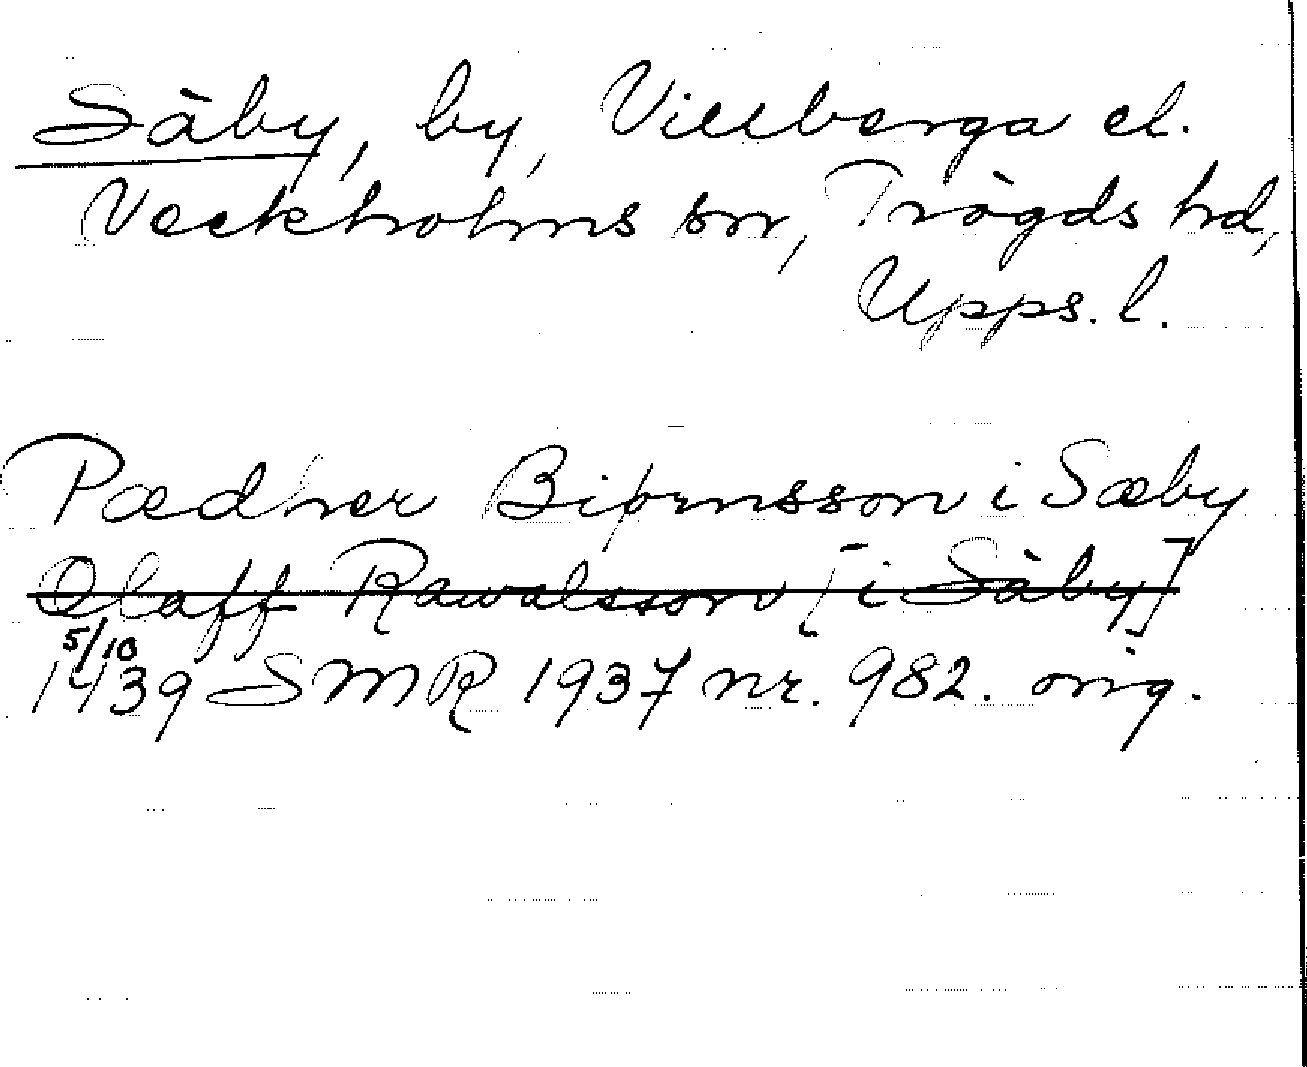 Säby, by, Villberga el.
Veckholms sn, Trögds hd,
Upps. l.
Pædher Biørnsson i Sæby
Olaff Rawalsson [i Säby]
5/10
1439 SMR 1937 nr. 982. orig.